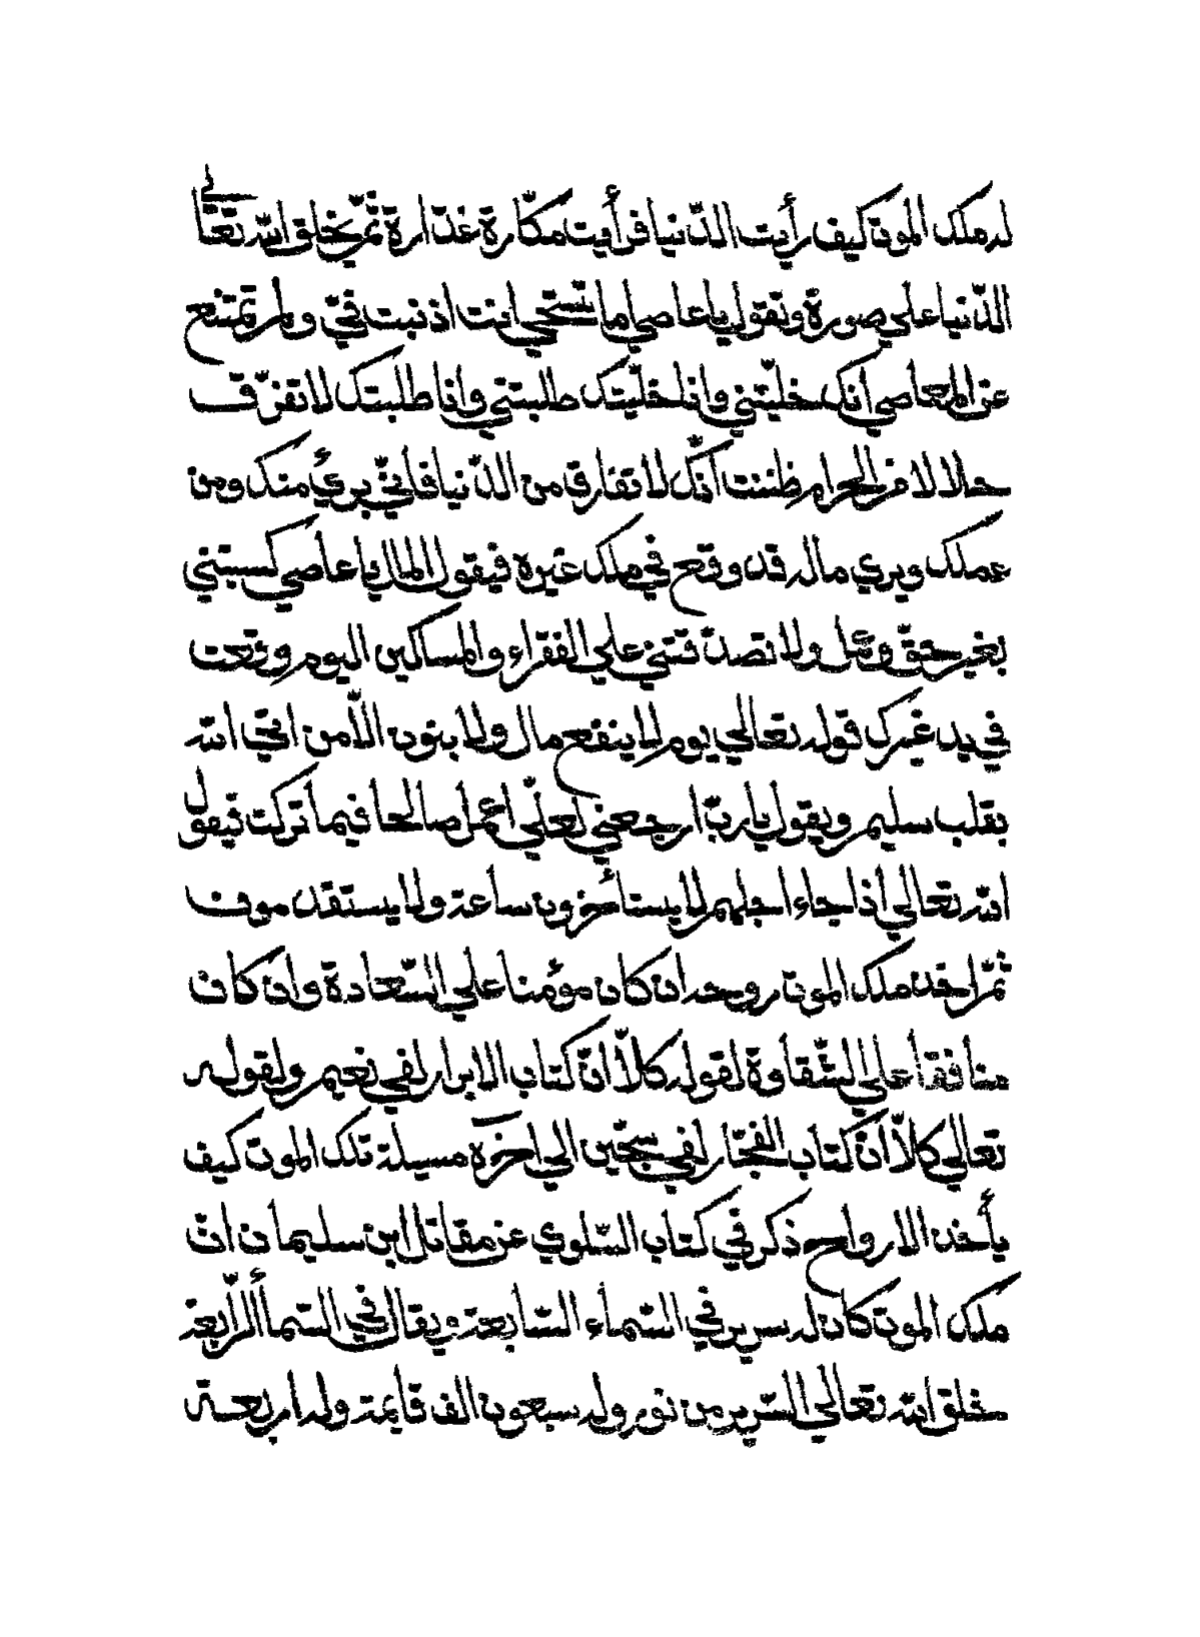 له ملك الموت كيف رأيت الدّنيا فرأيت مكّارة غدّارة ثمّ يخلق اللّه تعالى
الدّنيا على صورة وتقول يا عاصى اما تستحى انت اذنبت فىّ ولم تمتنع
عن المعاصى انك خليّتنى وانا خليّتك طلبتنى وانا طلبتك لا تفرّق
حلالا من الحرام ظننت أنّك لا تفارق من الدّنيا فانّى برئ منك ومن
عملك ويرى ماله قد وقع فى ملك غيره فيقول المال يا عاصى كسبتنى
بغير حقّ ولا تصدّقتنى على الفقراء والمساكين اليوم وقعت
فى يد غيرك قوله تعالى يوم لا ينفع مال ولا بنون الّا من اتى اللّه
بقلب سليم ويقول يا ربّ ارجعنى لعلّى اعمل صالحا فيما تركت فيقول
اللّه تعالى اذا جاء اجلهم لا يستأخرون ساعة ولا يستقدمون
ثمّ اخذ ملك الموت روحه ان كان مؤمنا على السّعادة وان كان
منافقا على الشّقاوة لقوله كلّا انّ كتاب الابرار لفى نعيم ولقوله
تعالى كلّا انّ كتاب الفجّار لفى سجّين الى اخرة مسيلة تلك الموت كيف
يأخذ الارواح ذكر فى كتاب السّلوى عن مقاتل ابن سليمان انّ
ملك الموت كان له سرير فى السّماء السّابعة ويقال فى السّماء الرّابعة
خلق اللّه تعالى السّرير من نور وله سبعون الف قايمة وله اربعة